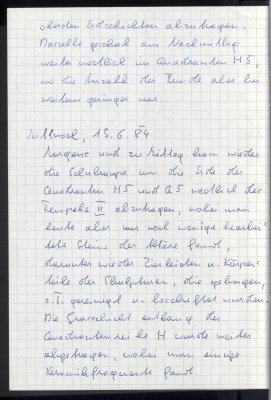 obersten Erdschichten abzutragen.
Dasselbe geschah am Nachmittag
weiter nordlich im Quadranten H5,
wo die Anzahl der Funde aber bei
weitem geringer war.
Mittwoch, 13.6.84
Morgens und zu Mittag kam wieder
die Schubraupe um die Erde der
Quadranten H5 und G5 westlich des
Tempels II abzutragen, wobei man
heute aber nur noch wenige bearbei-
tete Steine der Altäre fand,
darunter wieder Zierleisten u. Körper-
teile der Skulpturen, die geborgen,
z.T. gereinigt u. beschriftet wurden.
Die Grasschicht entlang der
Quadrantenreihe H wurde weiter
abgetragen, wobei man einige
Keramikfragmente fand.